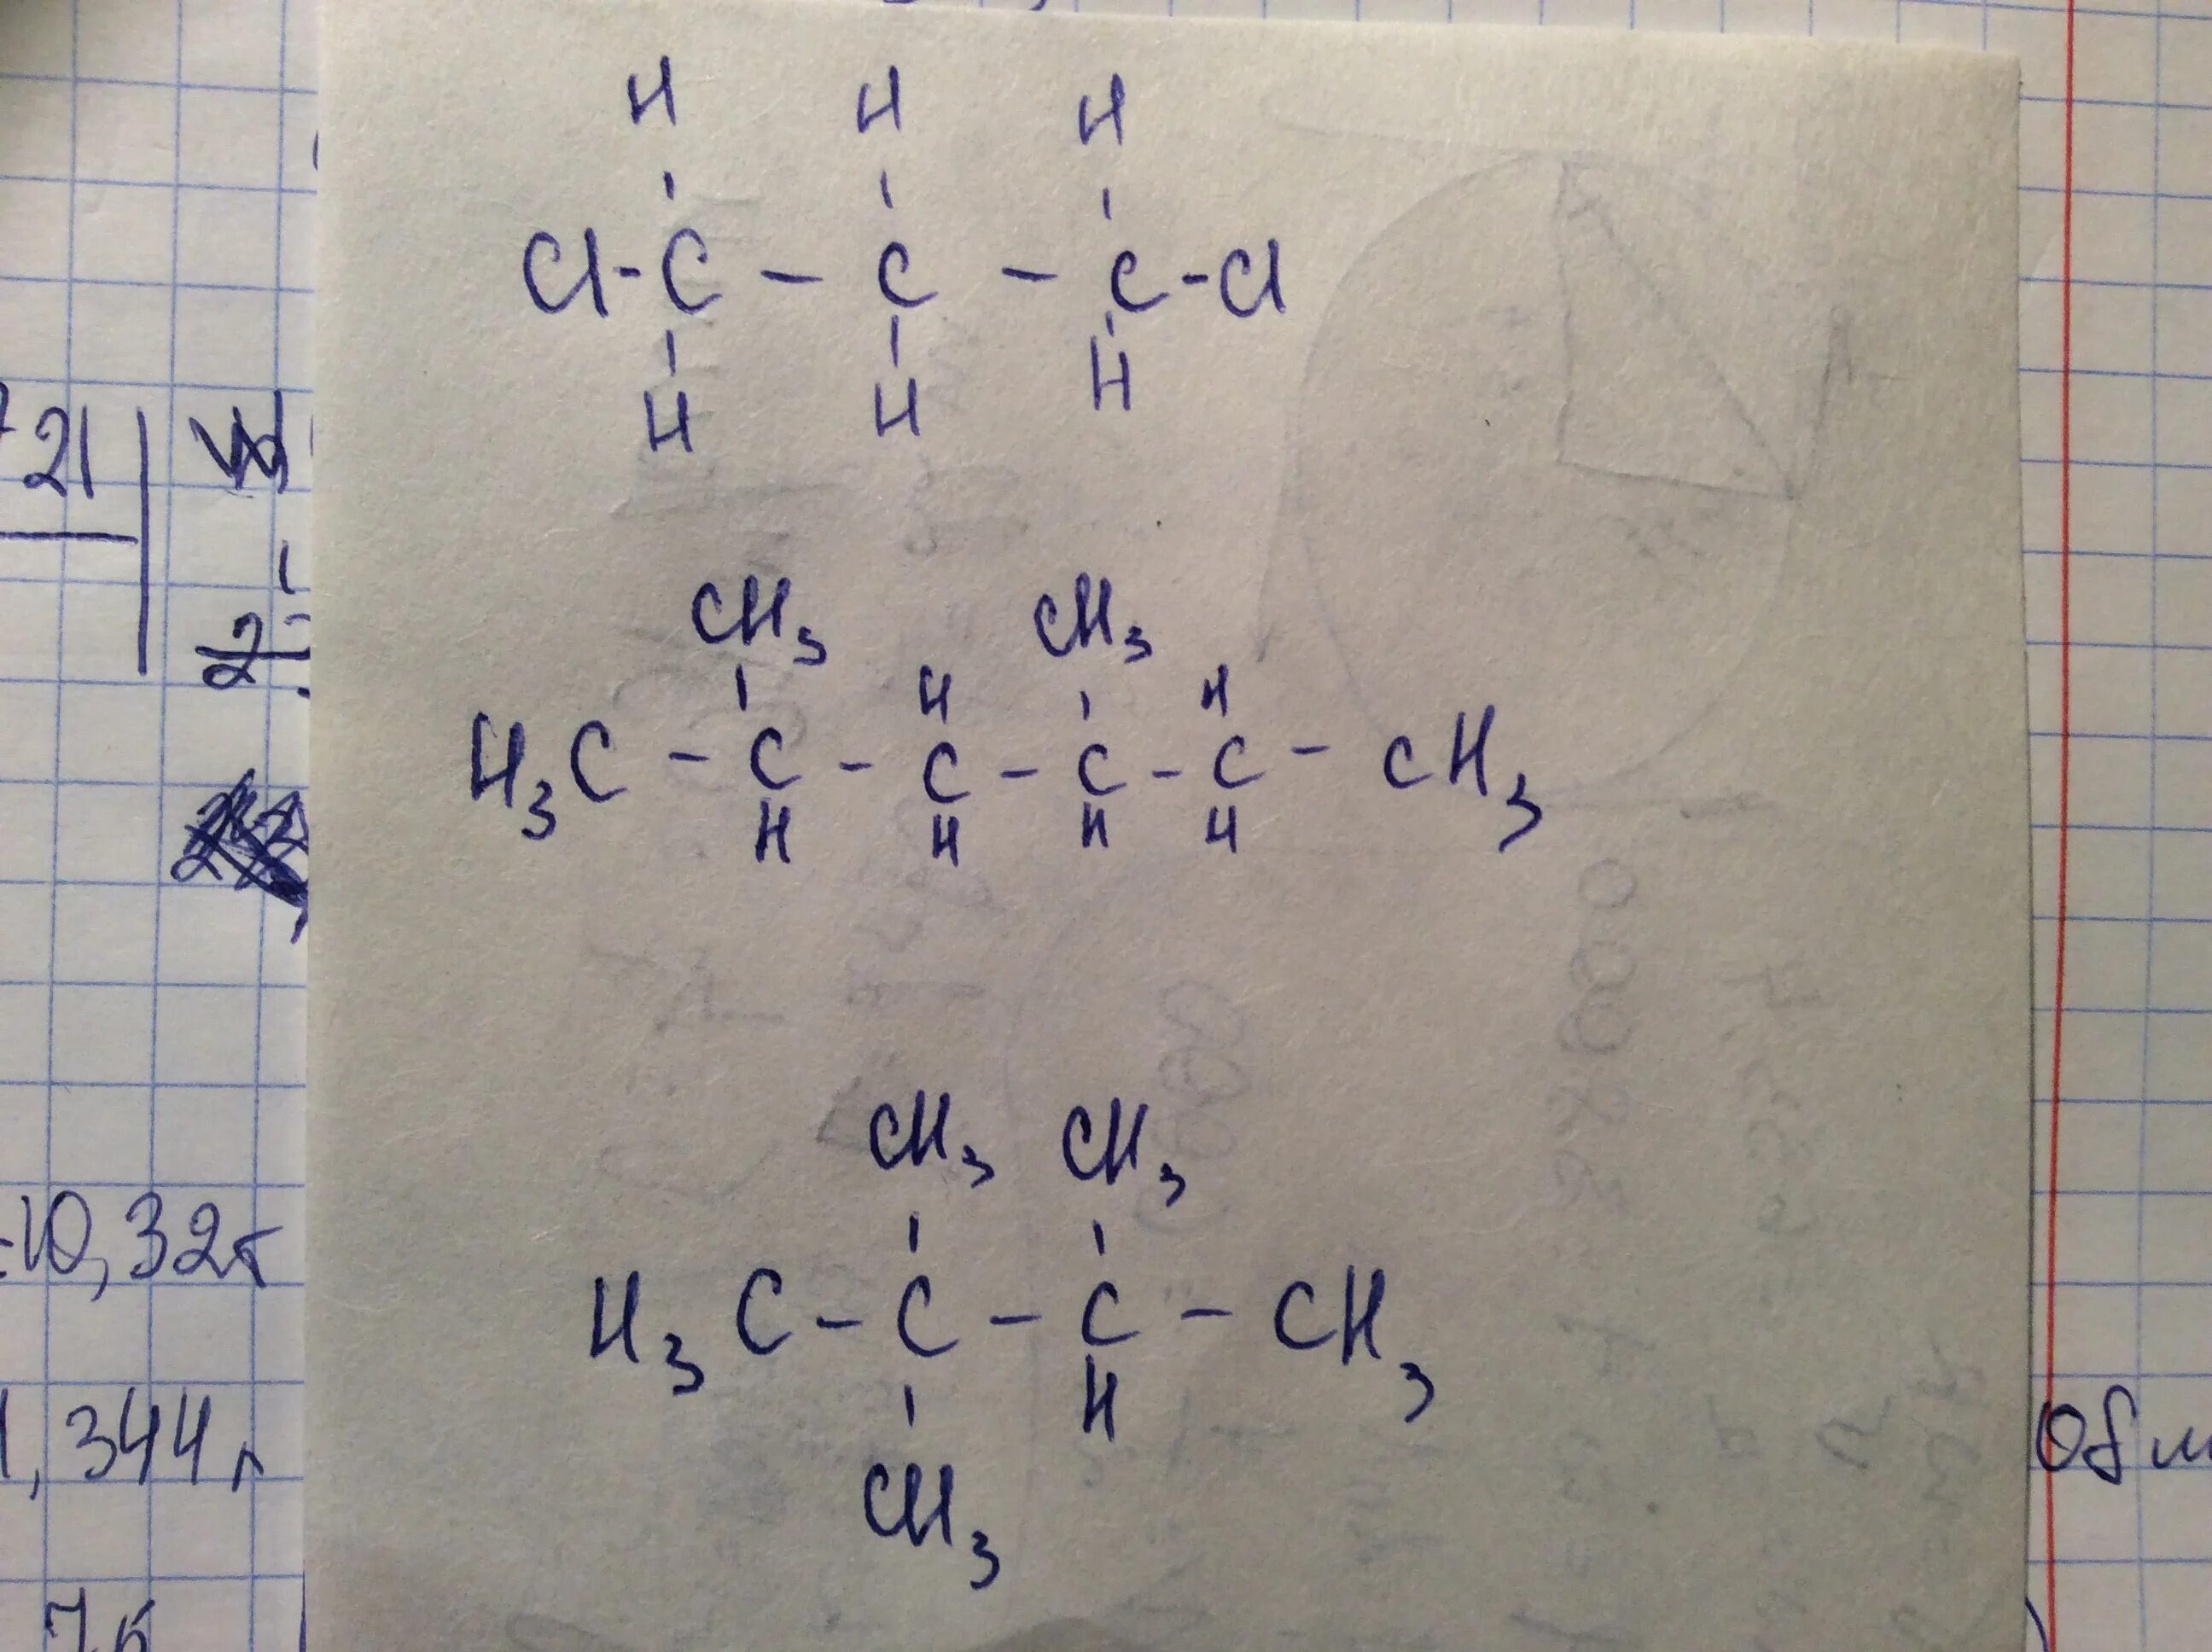 H H H
Cl-C - C - C-Cl
H H H
CH3 CH3
H H
H3C - C - C - C - C - CH3
H H H H
CH3 CH3
H3C - C - C - CH3
H
CH3
21
2
10,32г
1,344л
Обм
75